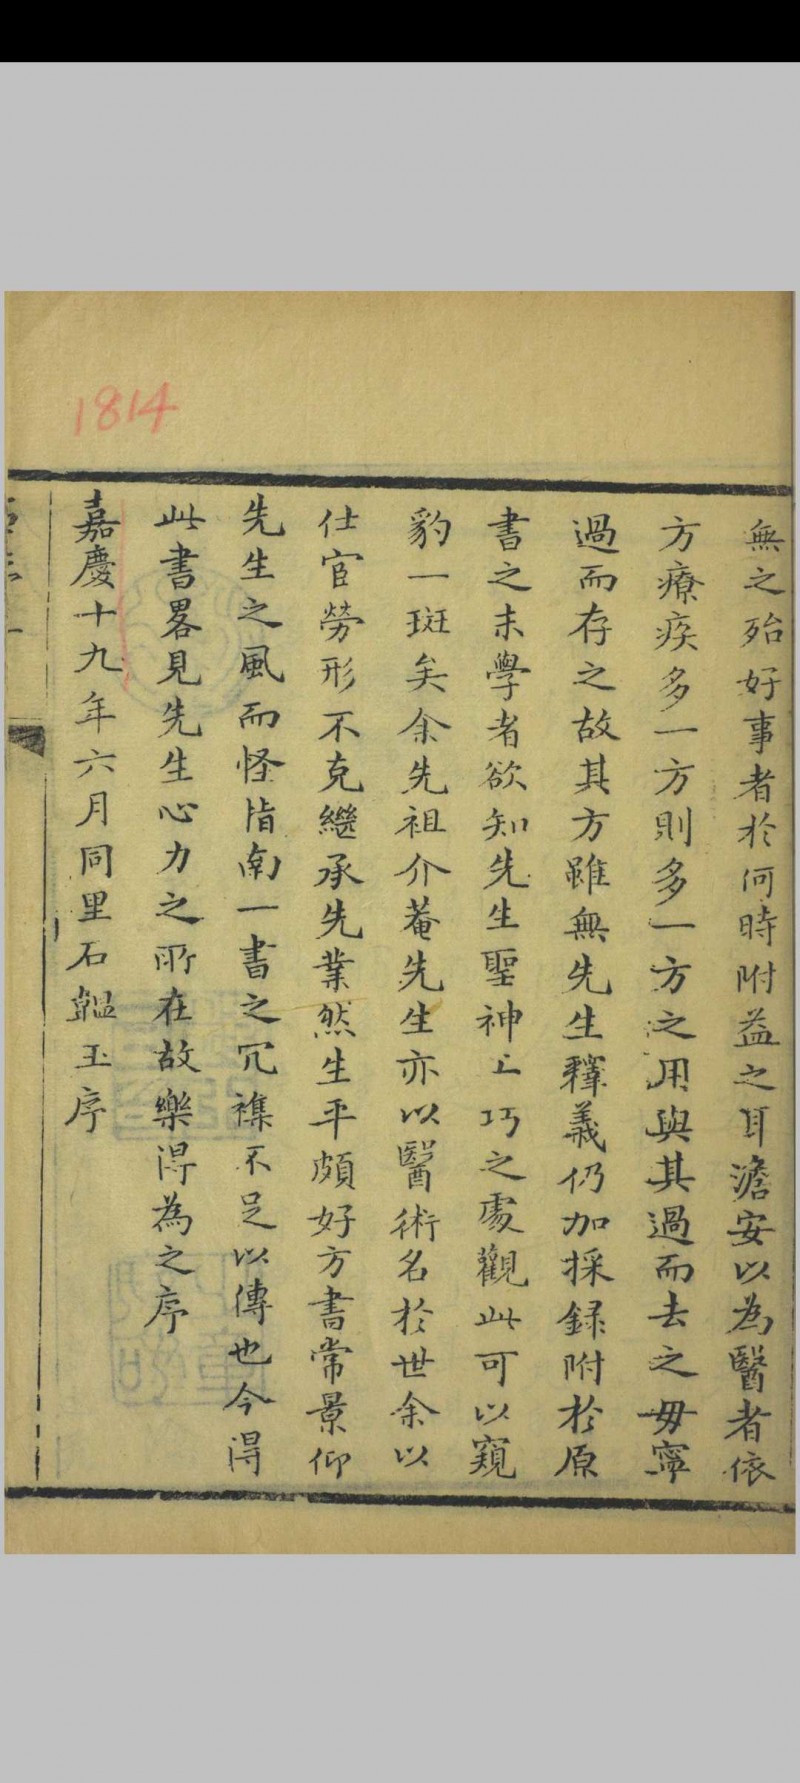 1814
無之殆好事者於何時附益之耳澹安以為醫者依
方療疾多一方則多一方之用與其過而去之毋寧
過而存之故其方雖無先生釋義仍加採録附於原
書之末學者欲知先生聖神工巧之處觀此可以窺
豹一斑矣余先祖介菴先生亦以醫術名於世余以
仕宦勞形不克繼承先業然生平頗好方書常景仰
先生之風而怪指南一書之冗襍不足以傳也今得
此書畧見先生心力之所在故樂得為之序
嘉慶十九年六月同里石韞玉序